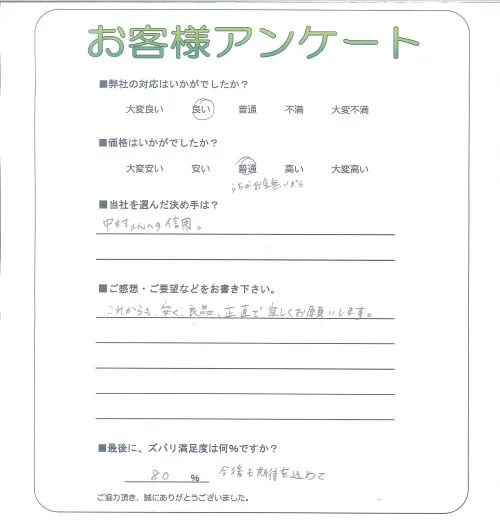 お客様アンケート
■弊社の対応はいかがでしたか？
大変良い 良い 普通 不満 大変不満
■価格はいかがでしたか？
大変安い 安い 普通 高い 大変高い
うちがお金無いから
■当社を選んだ決め手は？
中村さんへの信用。
■ご感想・ご要望などをお書き下さい。
これからも、安く、良品、正直で宜しくお願いします。
■最後に、ズバリ満足度は何%ですか？
80 % 今後も期待を込めて
ご協力頂き、誠にありがとうございました。